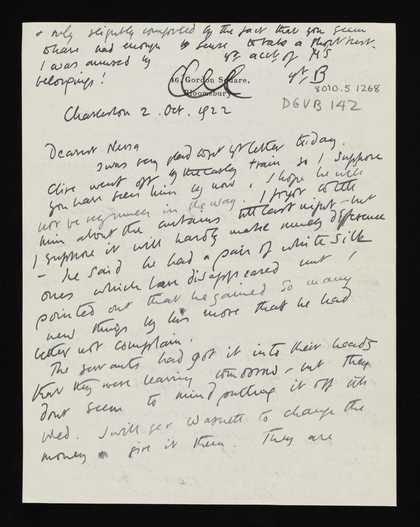 & only slightly composed by the fact that you seem
to have had enough sense to take a short rest.
I was amused by yr acct of MS
belongings! yr B
46, Gordon Square,
Bloomsbury
8010.5.1268
DGVB 142
Charleston 2. Oct. 1922
Dearest Nessa
I was very glad to get yr letter today.
Clive went off by the early train so I suppose
you have seen him by now. I hope he will
not be very much in the way. I forgot to tell
him about the curtains till last night – but
I suppose it will hardly make much difference
– he said he had a pair of white silk
ones which have disappeared but I
pointed out that he gained so many
new things by his move that he had
better not complain.
The servants had got it into their heads
that they were leaving tomorrow – but they
dont seem to mind putting it off till
Wed. I will see to change the
money & give it them. They are